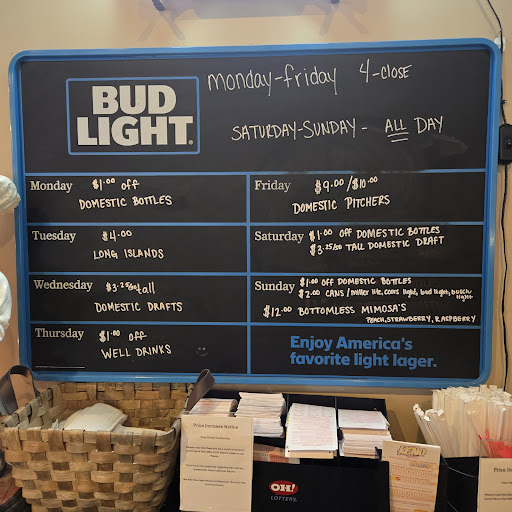 BUD
LIGHT.
Monday-Friday 4-CLOSE
SATURDAY-SUNDAY - ALL DAY
Monday $1.00 off
DOMESTIC BOTTLES
Tuesday $4.00
LONG ISLANDS
Wednesday $3.25/00 tall
DOMESTIC DRAFTS
Thursday $1.00 off
WELL DRINKS
Friday $9.00/$10.00
DOMESTIC PITCHERS
Saturday $1.00 OFF DOMESTIC BOTTLES
$3.25/00 TALL DOMESTIC DRAFT
Sunday $1.00 OFF DOMESTIC BOTTLES
$2.00 CANS/miller lite, coors light, bud light, busch
light
$12.00 BOTTOMLESS MIMOSA'S
PEACH, STRAWBERRY, RASPBERRY
Enjoy America's
favorite light lager.
Price Increase Notice
KENO
OH!
LOTTERY
Price Increase